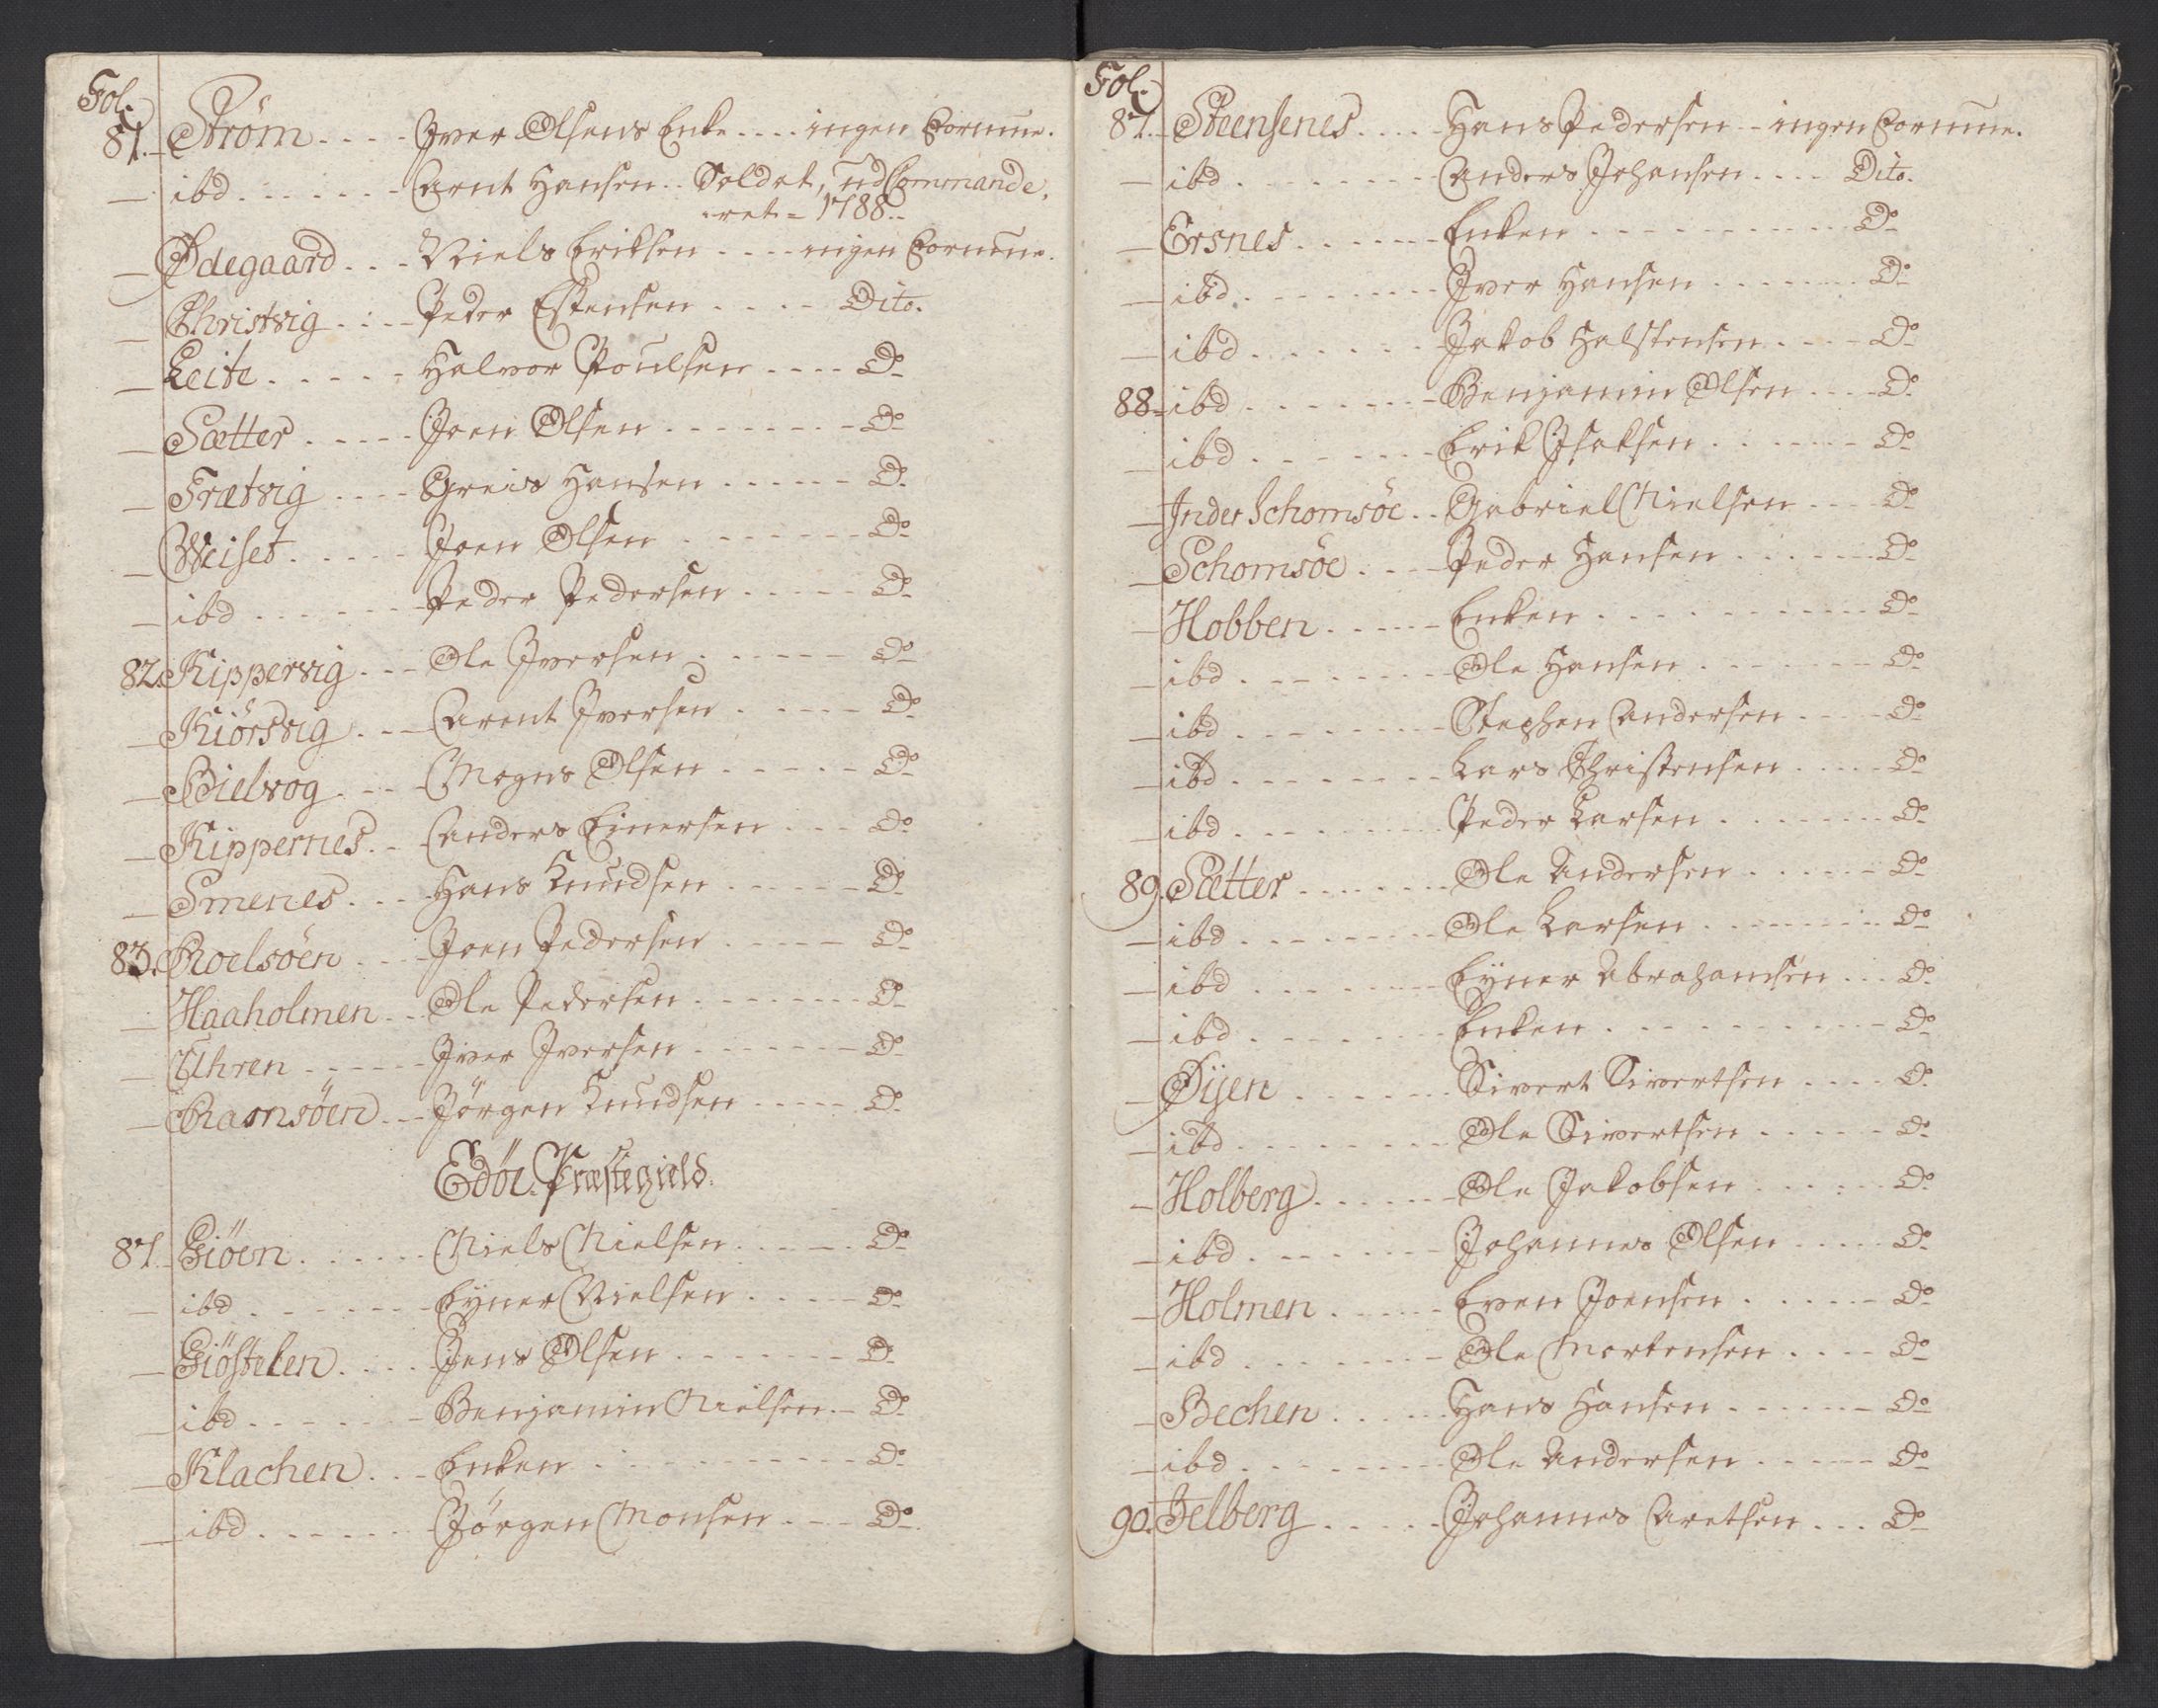 Fol.
81. Ström .... Iver Olsens Enke .... ingen Formue.
— ibd ...... Arnt Hansen .. Soldat, udCommande,
ret = 1788 ..
— Ødegaard ... Niels Eriksen .... ingen Formue.
— Christvig .... Peder Estensen .... Dito.
— Leite ..... Halvor Poulsen .... Do
— Sætter ..... Joen Olsen ....... Do
— Frætvig .... Greis Hansen ...... Do
— Weiset ..... Joen Olsen ....... Do
— ibd ...... Peder Pedersen ..... Do
82. Kippervig ... Ole Iversen ...... Do
— Kiörsvig ... Arent Iversen ..... Do
— Bielvog .... Mogns Olsen ..... Do
— Kippernes .. Anders Einersen ... Do
— Smenes .... Hans Knudsen ...... Do
83. Roelsöen ... Joen Pedersen ..... Do
— Haaholmen .. Ole Pedersen ....... Do
— Uhren ..... Iver Iversen ....... Do
— Ramsöen .. Jörgen Knudsen ..... Do
Edöe Præstegield.
87. Giöen ...... Niels Nielsen ..... Do
— ibd ....... Eyner Nielsen ..... Do
— Giöstelen .... Jens Olsen ....... Do
— ibd ...... Benjamin Nielsen .. Do
— Klachen ... Enken .......... Do
— ibd ...... Jörgen Monsen .... Do
Fol.
87. Steensenes .... Hans Pedersen .. ingen Formue.
— ibd ........ Anders Johansen .... Dito.
— Ersnes ...... Enken .......... Do
— ibd ........ Iver Hansen ....... Do
— ibd ....... Jakob Halstensen .... Do
88. ibd ....... Benjamin Olsen .... Do
— ibd ....... Erik Isaksen ...... Do
— Inder Schomsöe .. Gabriel Nielsen ... Do
— Schomsöe .... Peder Hansen ...... Do
— Hobben ..... Enken .......... Do
— ibd ....... Ole Hansen ....... Do
— ibd ....... Stephen Andersen .... Do
— ibd ....... Lars Christensen .... Do
— ibd ........ Peder Larsen ....... Do
89. Sætter ...... Ole Andersen ...... Do
— ibd ....... Ole Larsen ........ Do
— ibd ....... Eyner Abrahamsen ... Do
— ibd ....... Enken .......... Do
— Öijen ...... Sivert Sivertsen .... Do
— ibd ........ Ole Sivertsen ..... Do
— Holberg ...... Ole Jakobsen ..... Do
— ibd ....... Johannes Olsen ..... Do
— Holmen ..... Even Joensen ...... Do
— ibd ....... Ole Mortensen .... Do
— Bechen ..... Hans Hansen ...... Do
— ibd ........ Ole Andersen ..... Do
90. Felberg ..... Johannes Aretsen ... Do